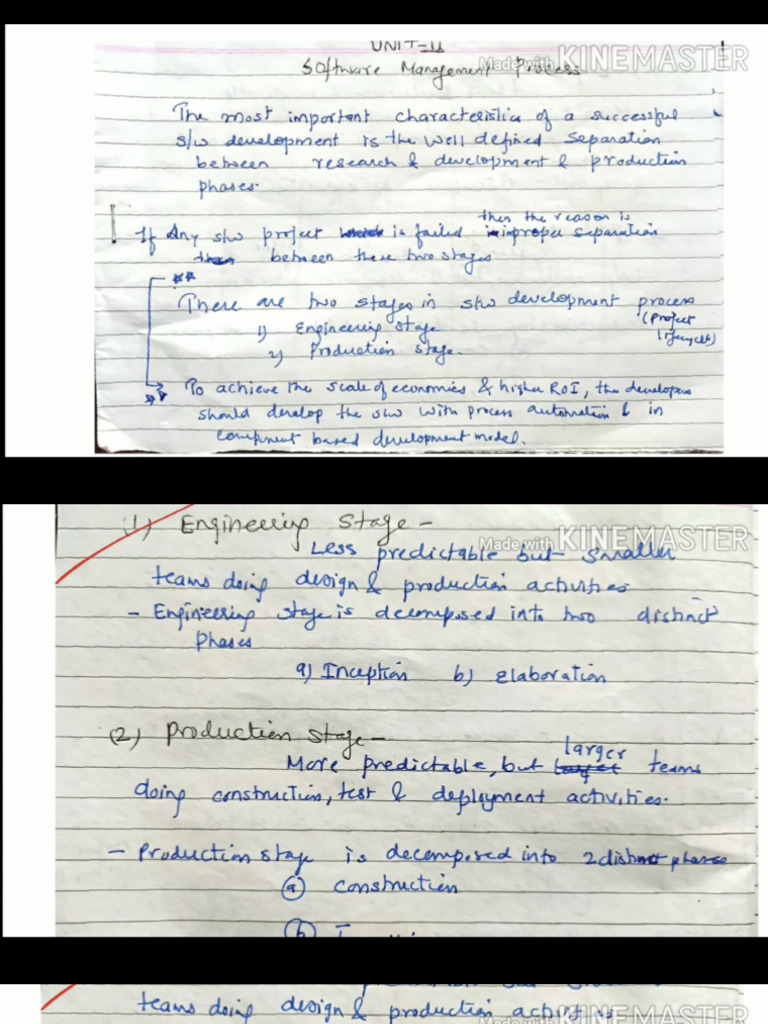 UNIT-II
Software Management Process
Made with KINEMASTER
The most important characteristics of a successful
s/w development is the well defined separation
between research & development & production
phases.
then the reason is
If Any s/w project is failed improper separation
between these two stages
There are two stages in s/w development process
(Project
lifecycle)
1) Engineering stage
2) Production stage.
To achieve the scale of economies & higher ROI, the developers
should develop the s/w with process automation & in
component based development model.
(1) Engineering stage -
Made with KINEMASTER
Less predictable but smaller
teams doing design & production activities
- Engineering stage is decomposed into two distinct
phases
a) Inception b) Elaboration
(2) Production stage -
larger
More predictable, but teams
doing construction, test & deployment activities.
- Production stage is decomposed into 2 distinct phases
(a) construction
(b)
teams doing design & production activities
Made with KINEMASTER